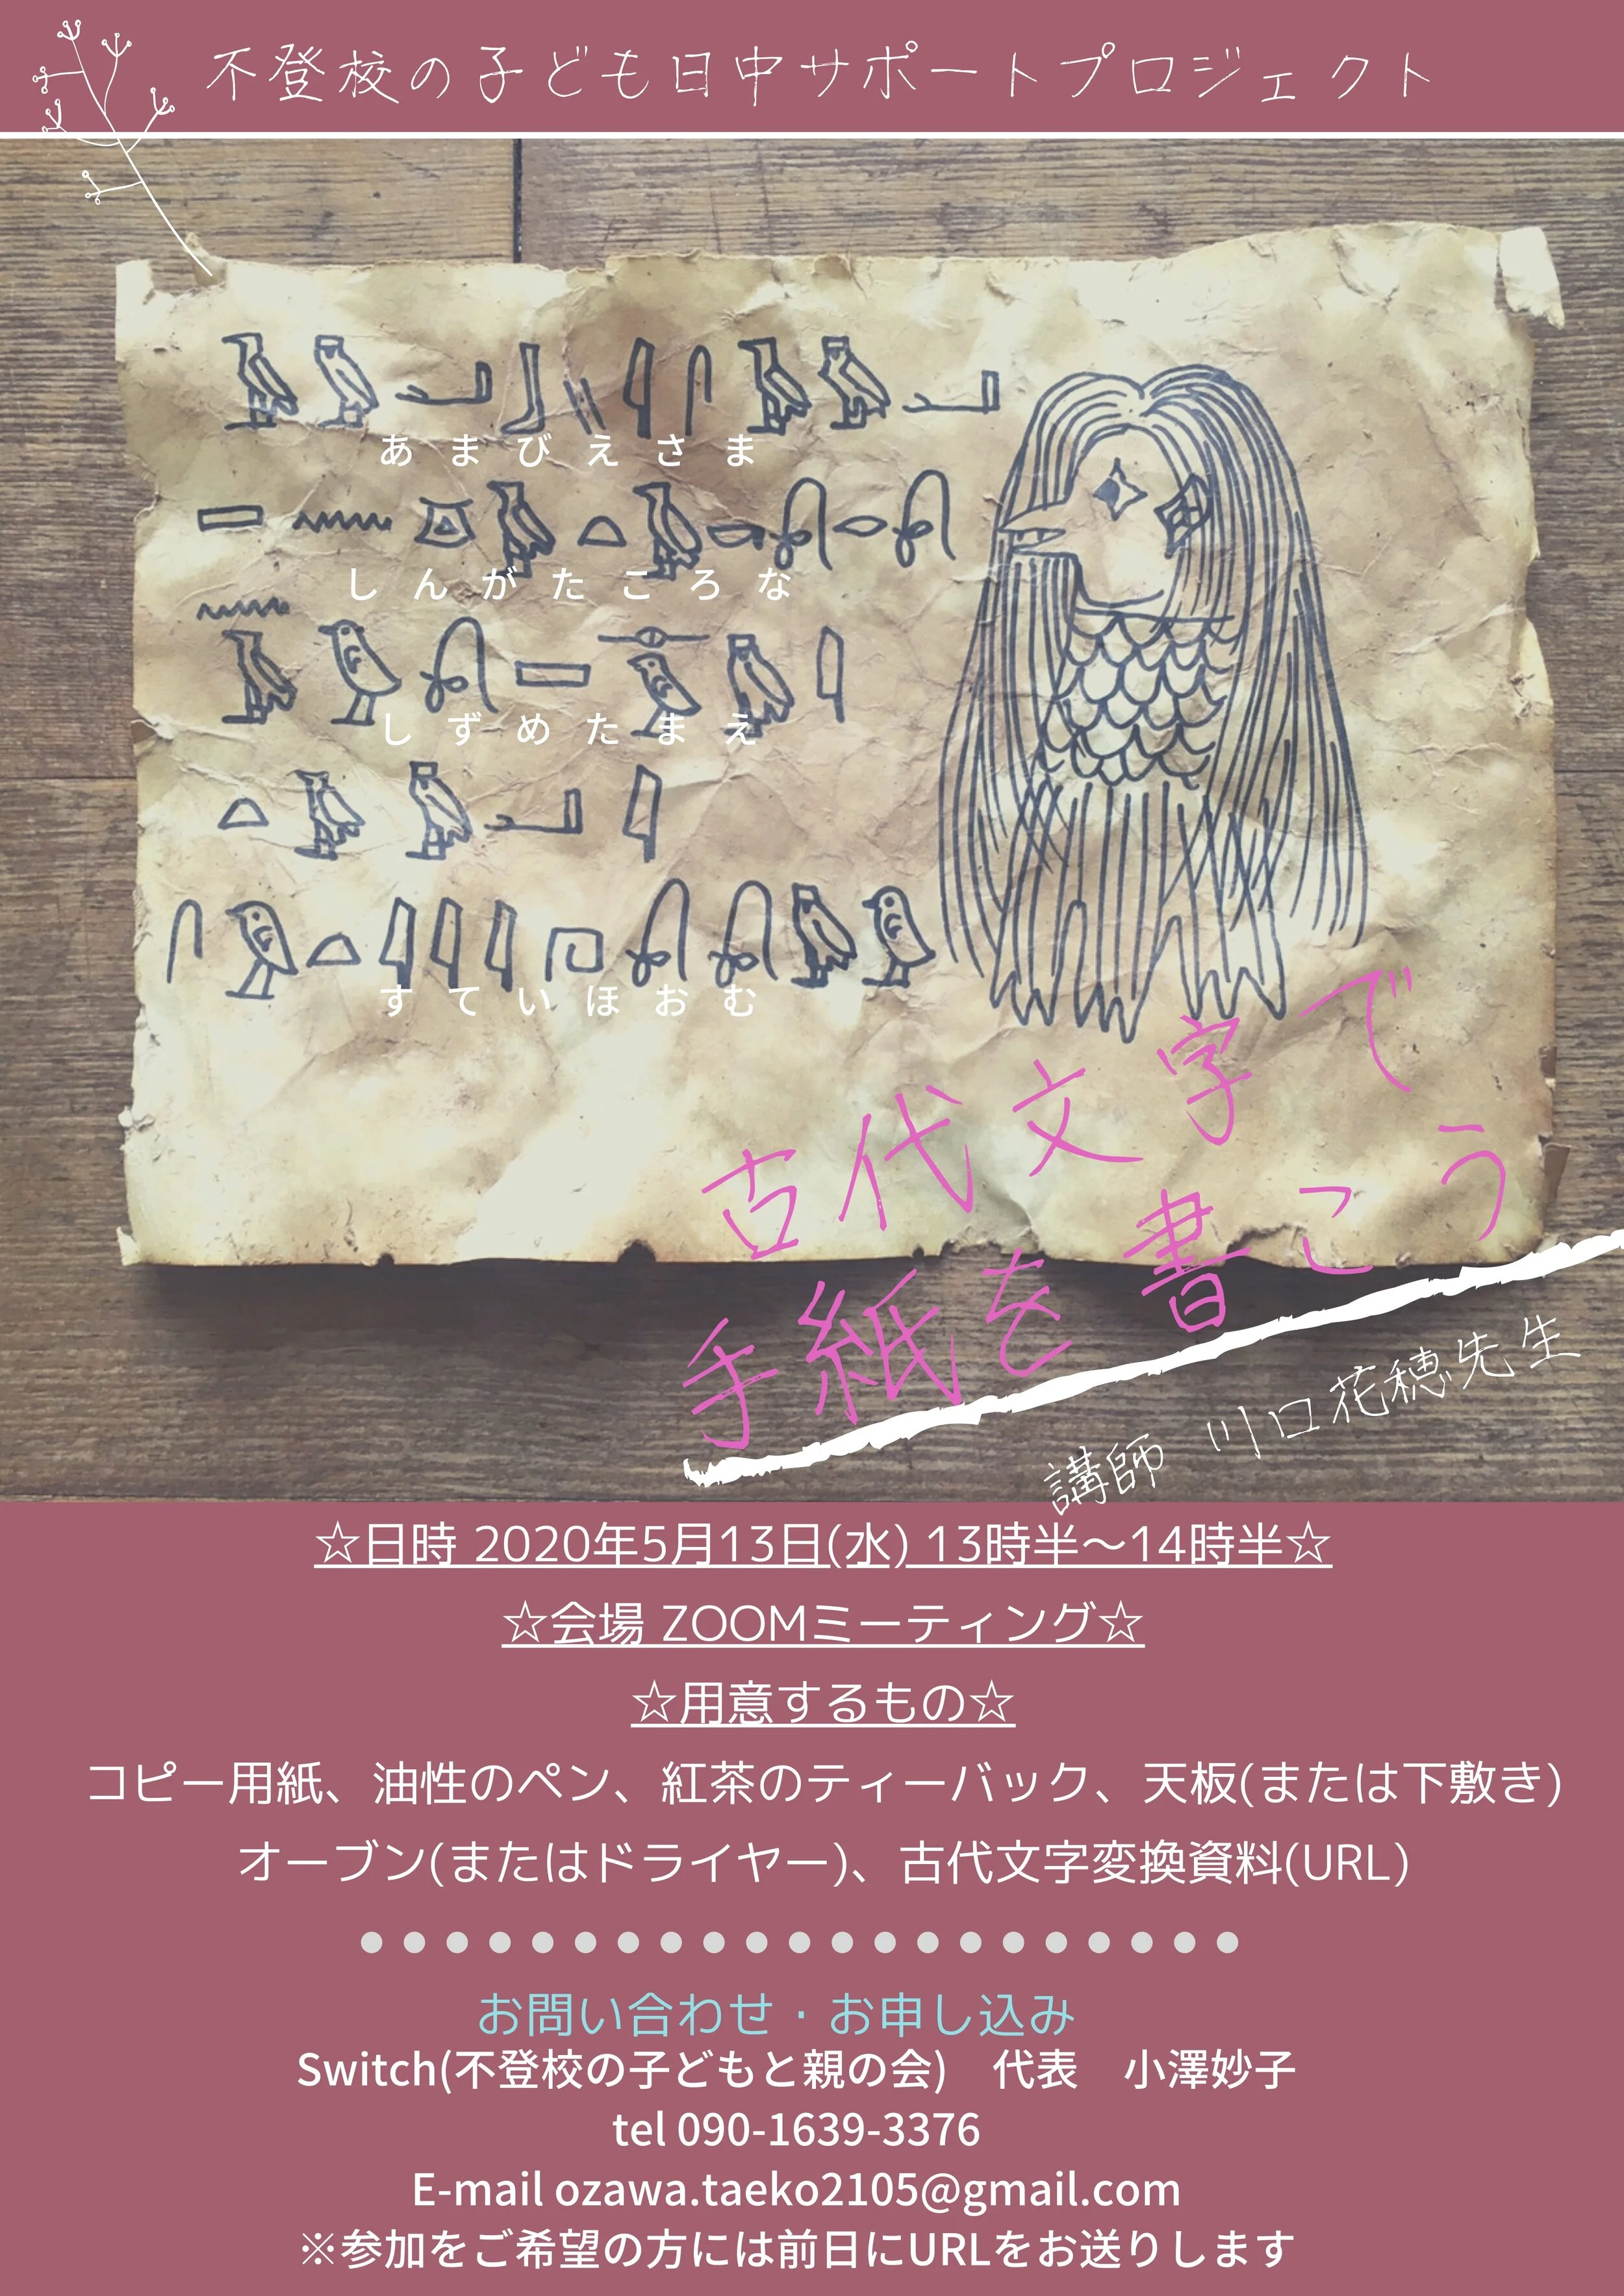 不登校の子ども日中サポートプロジェクト
あまびえさま
しんがたころな
しずめたまえ
すていほおむ
古代文字で
手紙を書こう
講師 川口花穂先生
☆日時 2020年5月13日(水) 13時半～14時半☆
☆会場 ZOOMミーティング☆
☆用意するもの☆
コピー用紙、油性のペン、紅茶のティーバック、天板(または下敷き)
オーブン(またはドライヤー)、古代文字変換資料(URL)
お問い合わせ・お申し込み
Switch(不登校の子どもと親の会)　代表　小澤妙子
tel 090-1639-3376
E-mail ozawa.taeko2105@gmail.com
※参加をご希望の方には前日にURLをお送りします